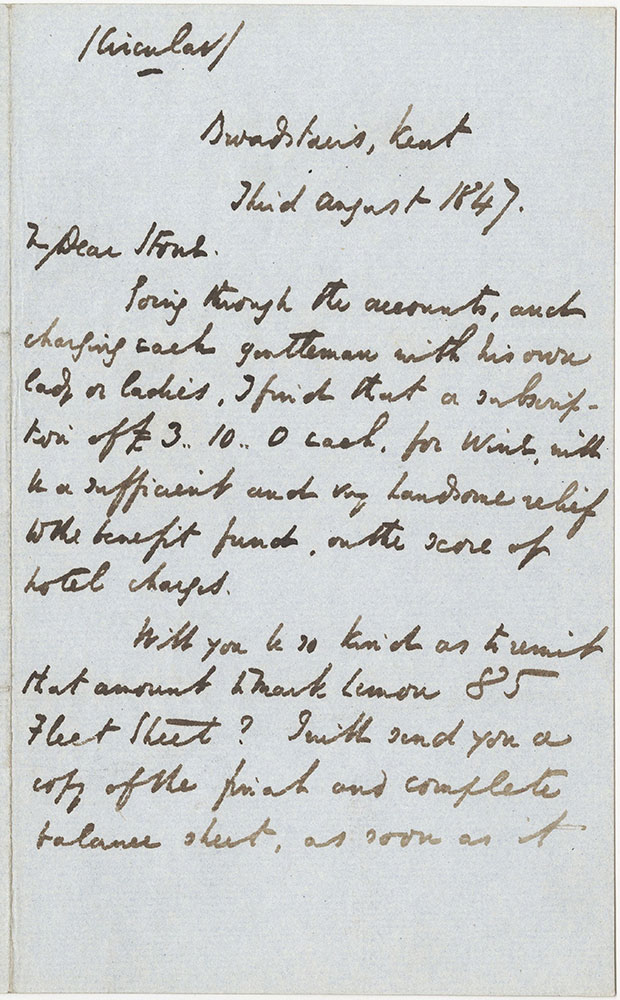 /Circular/
Broadstairs, Kent
Third August 1847.
My Dear Stone.
Going through the accounts, and
charging each gentleman with his own
lady or ladies, I find that a subscrip-
tion of £3.. 10.. 0 each, for Wine, will
be a sufficient and very handsome relief
to the benefit fund, on the score of
hotel charges.
Will you be so kind as to remit
that amount to Mark Lemon 85
Fleet Street? I will send you a
copy of the final and complete
balance sheet, as soon as it